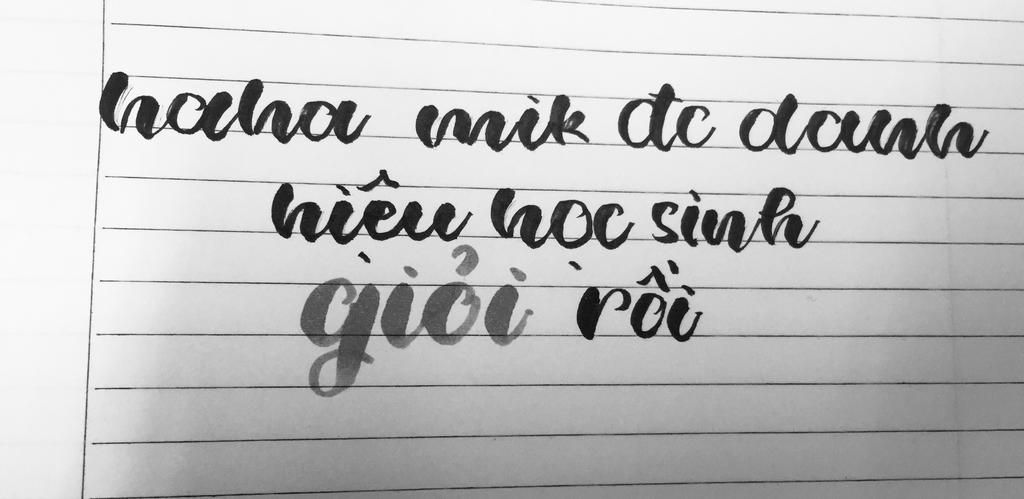 haha mik đc danh
hiệu học sinh
giỏi rồi